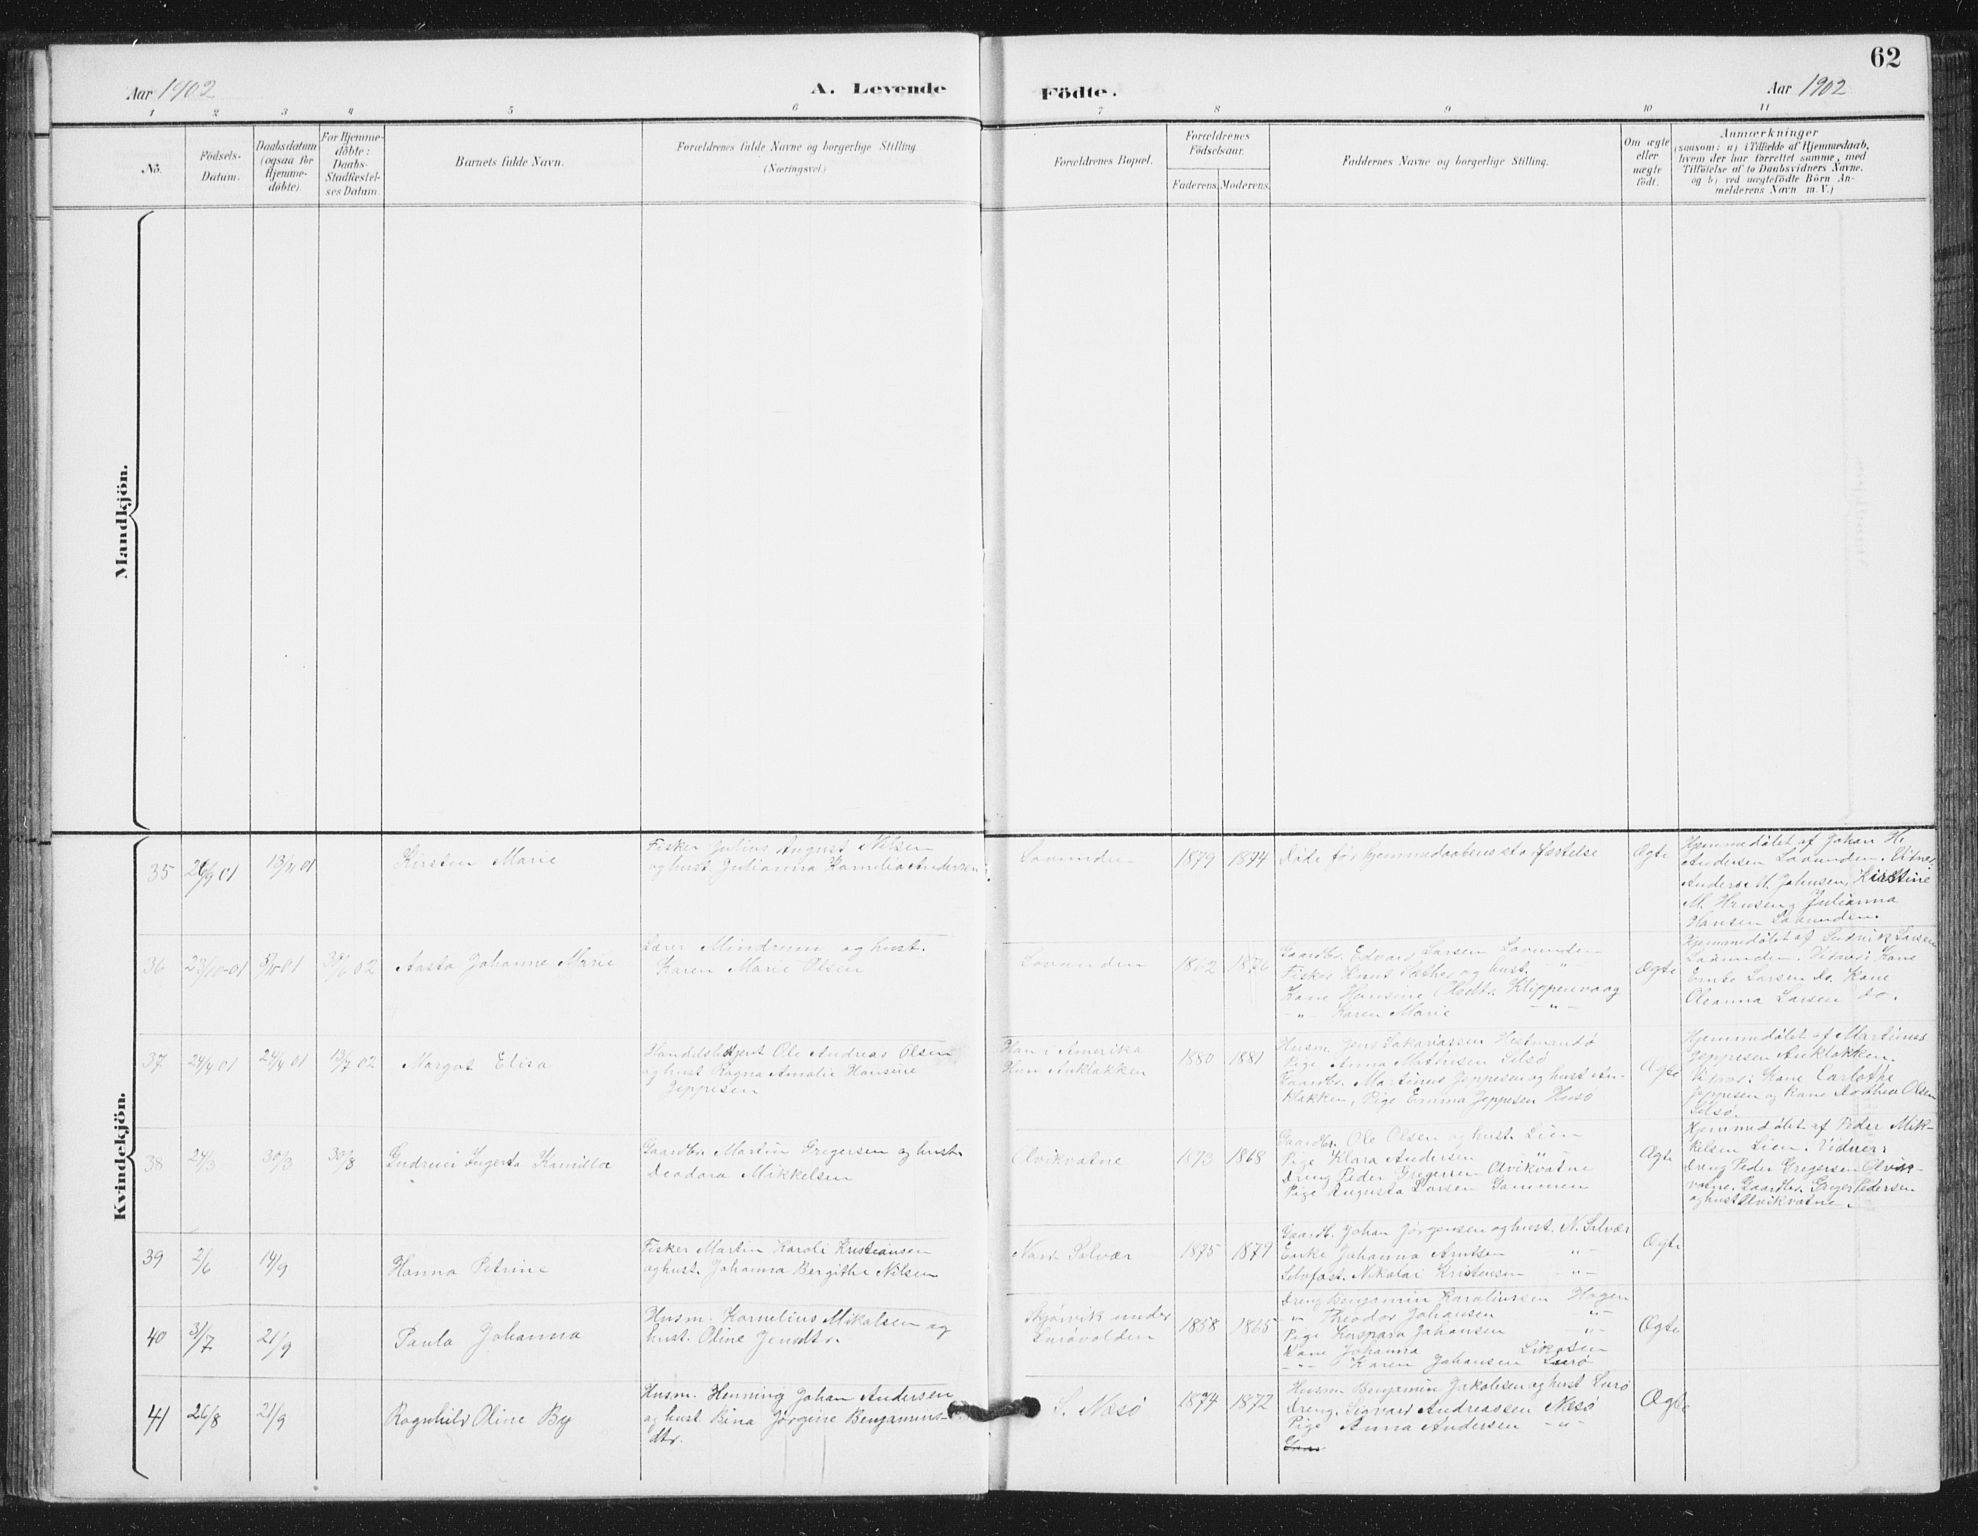 62
Aar 1902
A. Levende
Födte.
Aar 1902
1 2 3 4 5 6 7 8 9 10 11
No.
Födsels-
Datum.
Daabsdatum
(ogsaa for
Hjemme-
döbte).
For Hjemme-
döbte:
Daabs-
Stadfæstel-
ses Datum.
Barnets fulde Navn.
Forældrenes fulde Navne og borgerlige Stilling
(Næringsvei)
Forældrenes Bopæl.
Forældrenes
Födselsaar.
Faderens. Moderens.
Faddernes Navne og borgerlige Stilling.
Om ægte
eller
uægte
født.
Anmærkninger
(saasom: a) i Tilfælde af Hjemmedaab,
hvem der har forrettet samme, med
Tilföielse af to Daabsvidners Navne.
og b) ved uægtefödte Börn An-
melderens Navn m. V.)
Mandkjön.
Kvindekjön.
35
13/11 01
Kirsten Marie
Fisker Julius August Nilsen
og hust. Julianna Kamilia Andersen
Lovunden
1879
1874
Døde før hjemmedaabens stadfæstelse
Ægte
Hjemmedøbt af Johan H.
Andersen Lovunden. Vitner:
Anders M. Johnsen, Kirstine
M. Hansen, Julianna
Hansen Lovunden.
36
Aasta Johanne Marie
Lærer Mindrum og hust.
Karen Marie Olsen
Lovunden
1876
Gaardbr. Edvard Larsen Lovunden
Fisker Knut og hust. -"-
Kane Hansine Olsdtr. Klippenvaag
-"- Karen Marie -"-
Ægte
Hjemmedøbt af Larsen
Lovunden. Vitner: Kane
Larsen do. Kane
Oleanna Larsen do.
37
24/4 01
13/7 02
Margot Elisa
Handelsbetjent Ole Andreas Olsen
og hust Ragna Amalie Hansine
Jeppesen
Han i Amerika
Hun Anklakken
1880
1881
Husm. Jens Sakariassen Hestmandø
Pige Anna Mathisen Selsø
Gaardbr. Martinus Jeppesen og hust An-
klakken, Pige Emma Jeppesen Husø
Ægte
Hjemmedøbt af Martinus
Jeppesen Anklakken.
Vitner: Kane Carlothe
Jeppesen og Kane Dorthea Olsen
Selsø.
38
24/3
30/3
30/8
Gudruni Ingerta Kamilla
Gaardbr. Martin Gregersen og hust.
Deodora Mikkelsen
Olvikvatne
1873
1868
Gaardbr. Ole Olsen og hust. Lien
Pige Klara Andersen "
Dreng Peder Gregersen Olvikvatne
Pige Augusta Larsen Gammen
Ægte
Hjemmedøbt af Peder Mik-
kelsen Lien. Vidner:
Dreng Peder Gregersen Olvik-
vatne. Gaardbr. Greger Pedersen
og hust Olvikvatne.
39
2/6
14/9
Hanna Petrine
Fisker Martin Karoli Kristiansen
og hust. Johanna Bergithe Nilsen
Nord. Solvær
1875
1879
Gaardb. Johan Jørgensen og hust. N. Solvær
Enke Johanna Arntsen -"-
Selvfost. Nikolai Kristensen -"-
Ægte
40
31/7
21/9
Paula Johanna
Husm. Kornelius Mikalsen og
hust. Oline Jensdtr.
under
Lurøvolden
1858
1865
Dreng Benjamin Karoliussen Hagen
" Theodor Johansen -"-
Pige Kaspara Johansen -"-
Kane Johanna
-"- Karen Johansen Lurø
Ægte
41
26/8
21/9
Ragnhild Oline By
Husm. Henning Johan Andersen
og hust. Bina Jørgine Benjamins-
dtr.
S. Nesø
1874
1872
Husm Benjamin Jakobsen og hust Lurø
Dreng. Sigvard Andreassen Nesø
Pige Anna Andersen -"-
Ægte